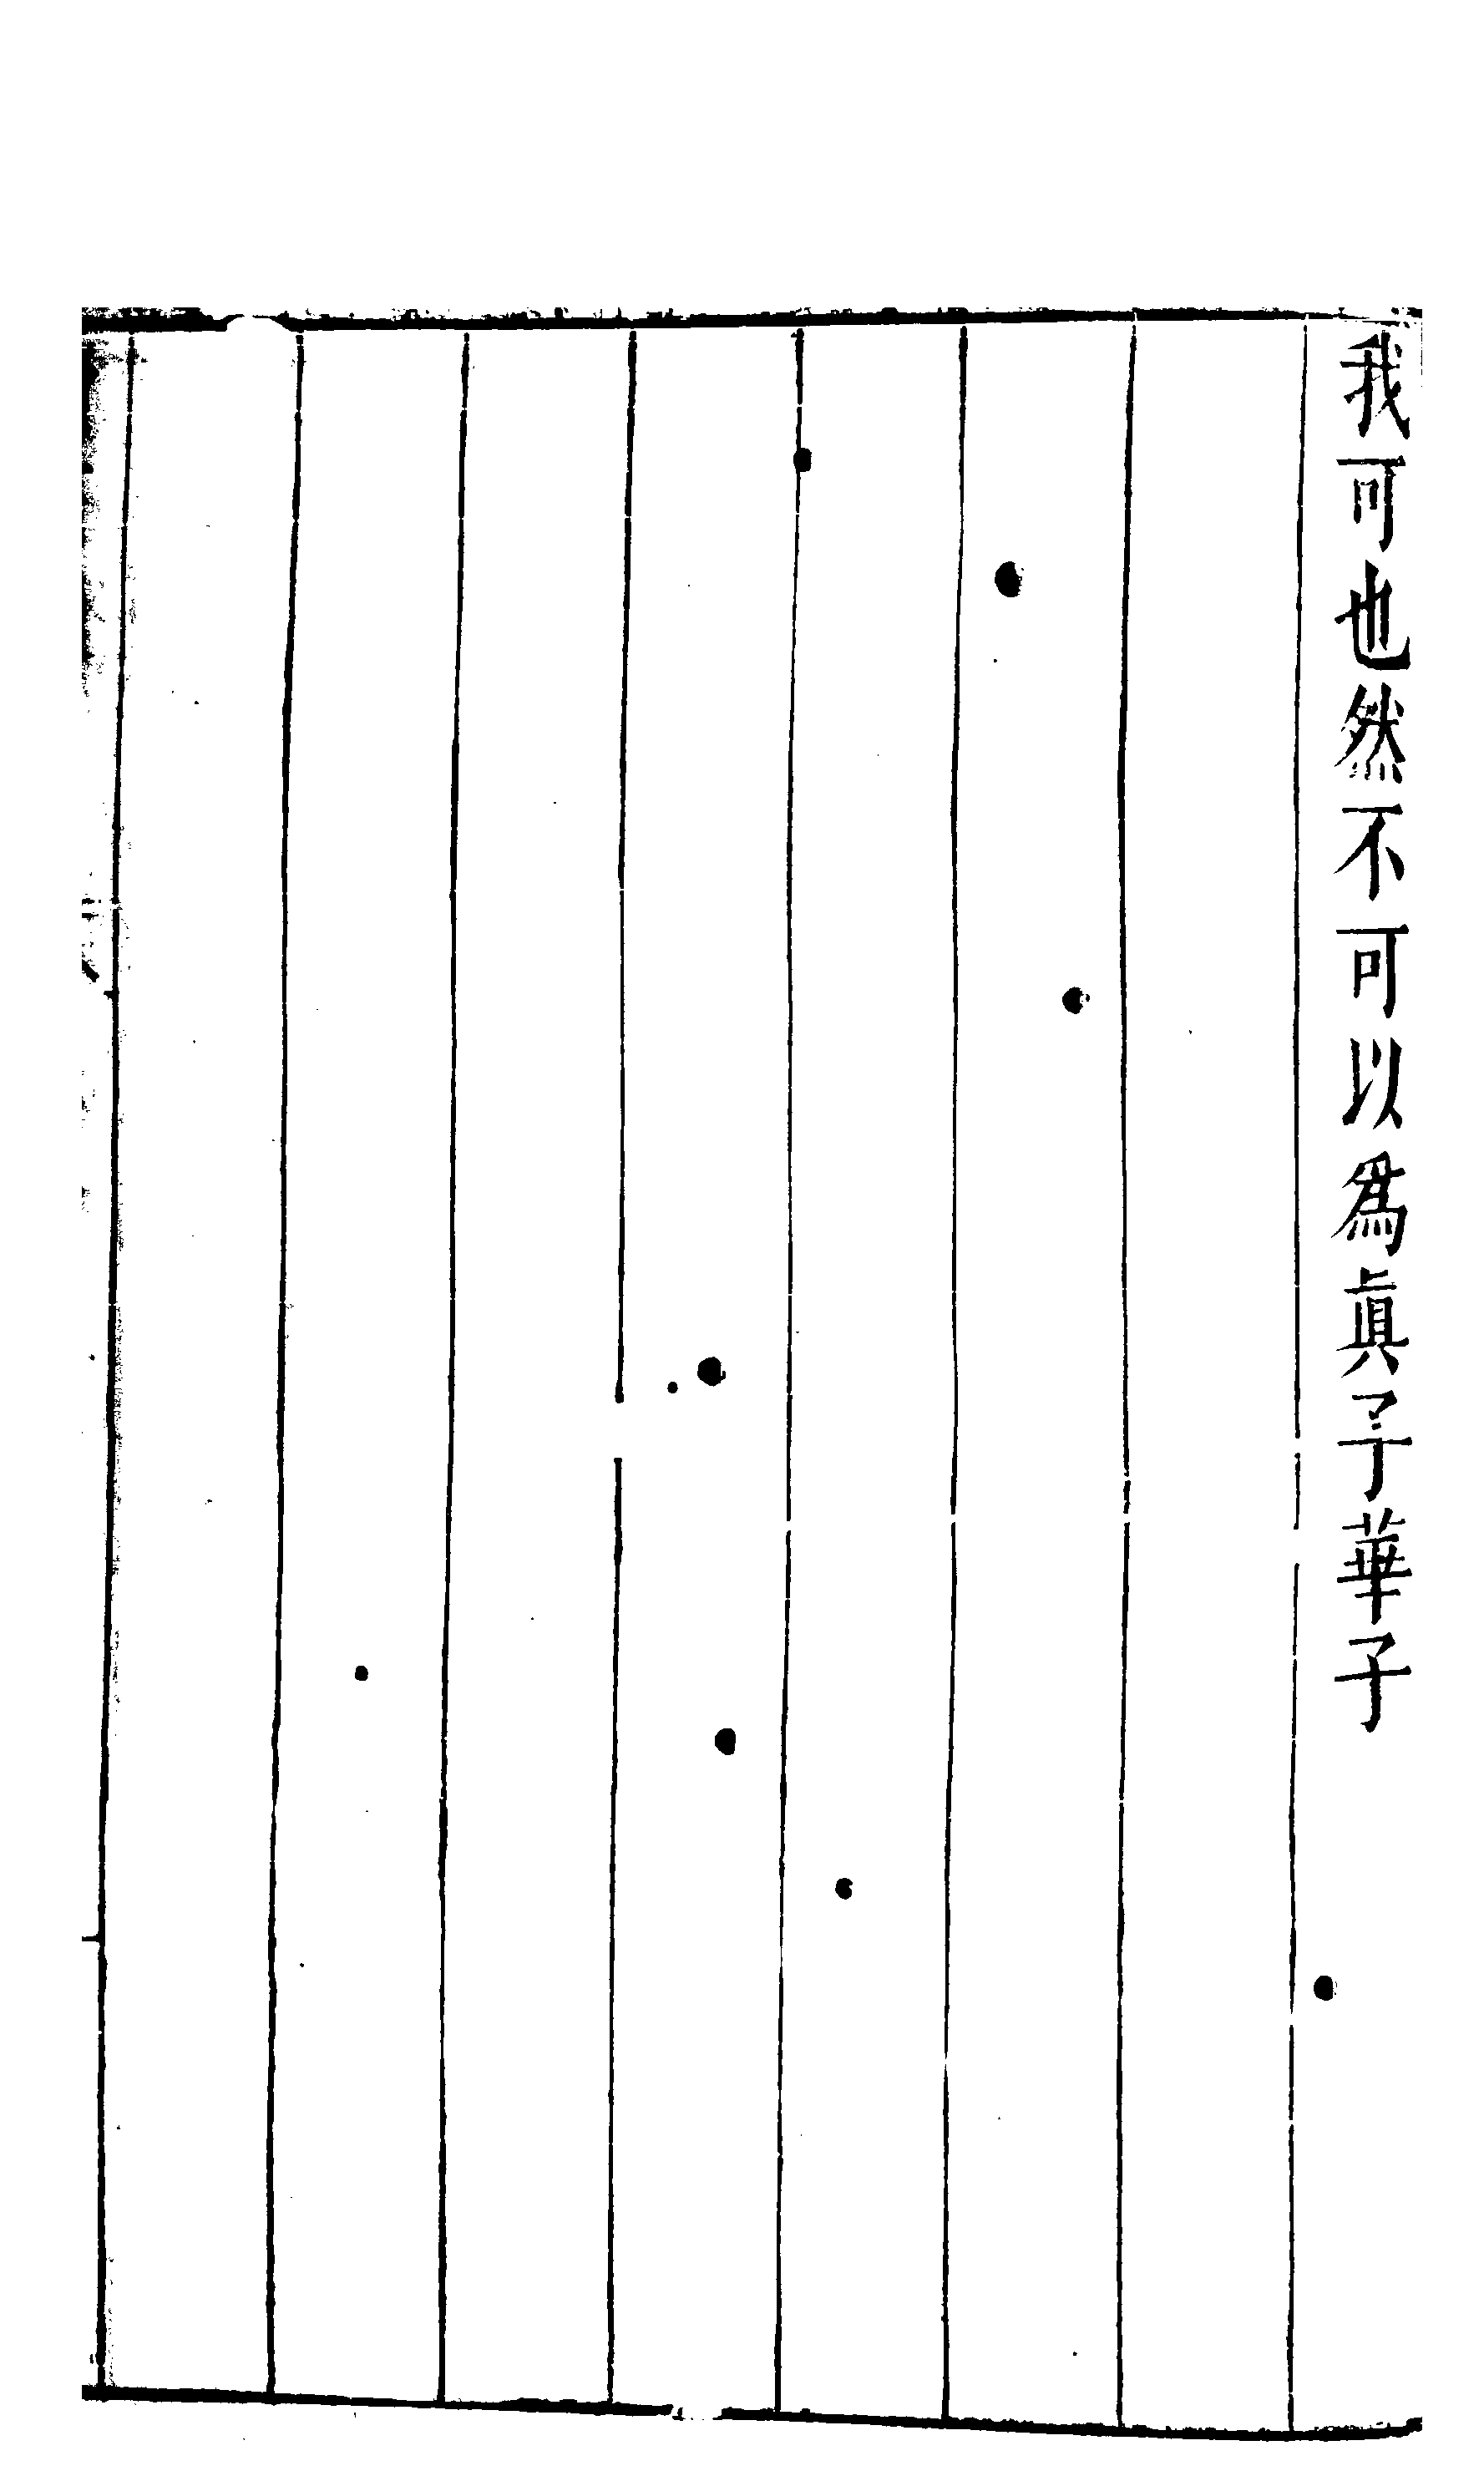 我可也然不可以爲眞子華子